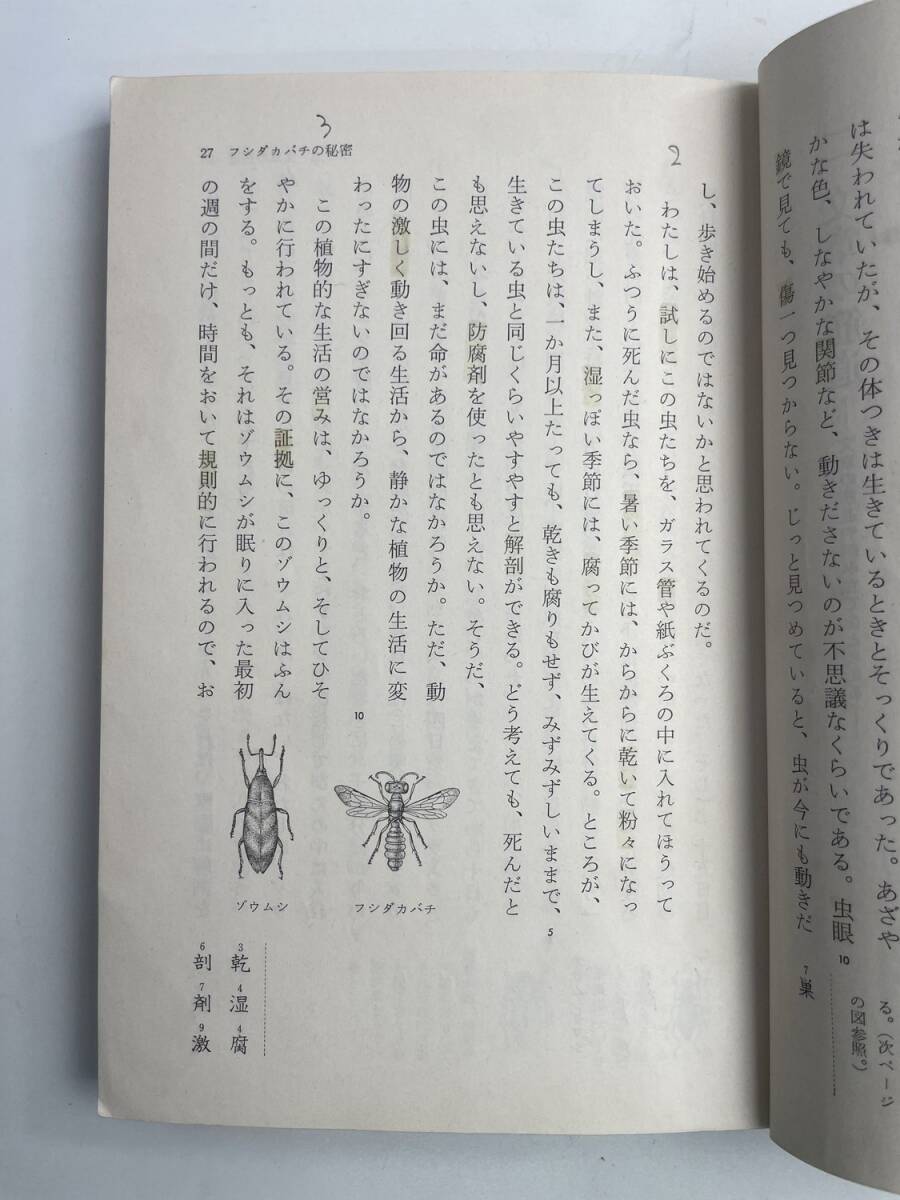 は失われていたが、その体つきは生きているときとそっくりであった。あざや
かな色、しなやかな関節など、動きださないのが不思議なくらいである。虫眼
鏡で見ても、傷一つ見つからない。じっと見つめていると、虫が今にも動きだ
10
7 巣
る。(次ページ
の図参照。)
2
3
27 フシダカバチの秘密
し、歩き始めるのではないかと思われてくるのだ。
わたしは、試しにこの虫たちを、ガラス管や紙ぶくろの中に入れてほうって
おいた。ふつうに死んだ虫なら、暑い季節には、からからに乾いて粉々になっ
てしまうし、また、湿っぽい季節には、腐ってかびが生えてくる。ところが、
この虫たちは、一か月以上たっても、乾きも腐りもせず、みずみずしいままで、
5
生きている虫と同じくらいやすやすと解剖ができる。どう考えても、死んだと
も思えないし、防腐剤を使ったとも思えない。そうだ、
この虫には、まだ命があるのではなかろうか。ただ、動
物の激しく動き回る生活から、静かな植物の生活に変
わったにすぎないのではなかろうか。
10
この植物的な生活の営みは、ゆっくりと、そしてひそ
やかに行われている。その証拠に、このゾウムシはふん
をする。もっとも、それはゾウムシが眠りに入った最初
の週の間だけ、時間をおいて規則的に行われるので、お
フシダカバチ
ゾウムシ
3 乾 4 湿 4 腐
6 剖 7 剤 9 激